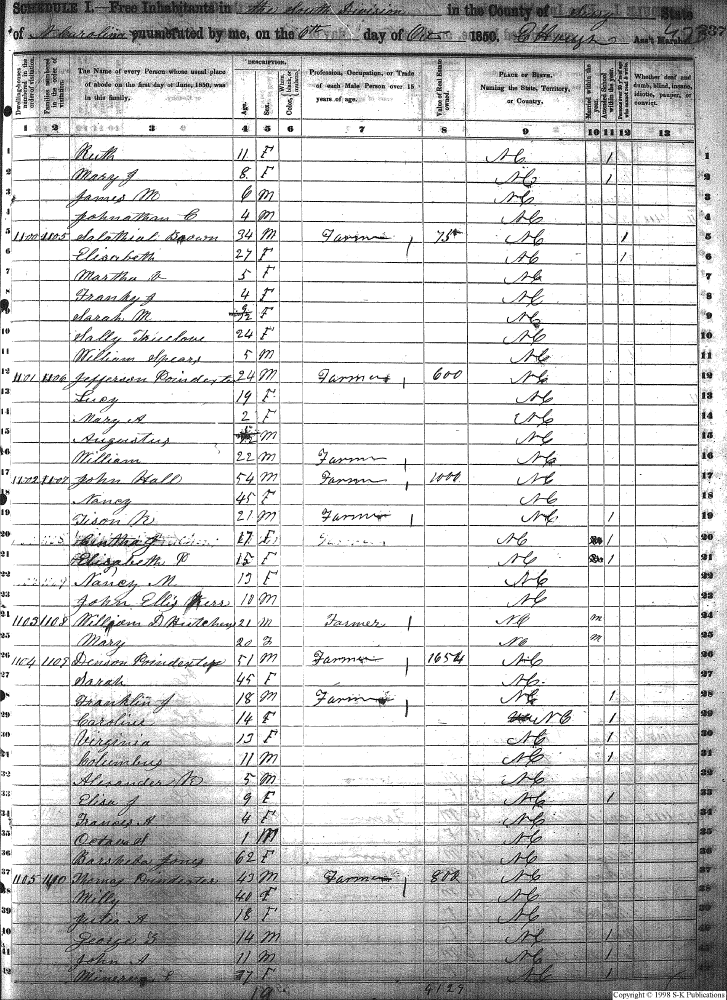 SCHEDULE I.—Free Inhabitants in the South Division in the County of Surry State
of N Carolina enumerated by me, on the 6th day of Oct 1850. Ass't Marshal 237
Dwelling-houses numbered in the order of visitation.
Families numbered in the order of visitation.
The Name of every Person whose usual place of abode on the first day of June, 1850, was in this family.
DESCRIPTION.
Age.
Sex.
Color, White, black, or mulatto.
Profession, Occupation, or Trade of each Male Person over 15 years of age.
Value of Real Estate owned.
PLACE OF BIRTH. Naming the State, Territory, or Country.
Married within the year.
Attended School within the year.
Persons over 20 y'rs of age who cannot read & write.
Whether deaf and dumb, blind, insane, idiotic, pauper, or convict.
1 2 3 4 5 6 7 8 9 10 11 12 13
1 Ruth 11 F NC 1 1
2 Mary J 8 F NC 1 2
3 James M 6 M NC 3
4 Johnathan C 4 M NC 4
5 1100 1105 Salathial Brown 34 M Farmer 1 750 NC 1 5
6 Elisabeth 27 F NC 1 6
7 Martha 5 F NC 7
8 Franky J 4 F NC 8
9 Sarah M 9/12 F NC 9
10 Sally Truelove 24 F NC 10
11 William Spears 5 M NC 11
12 1101 1106 Jefferson Poindexter 24 M Farmer 1 600 NC 12
13 Lucy 19 F NC 13
14 Mary A 2 F NC 14
15 Augustus M NC 15
16 William 22 M Farmer 1 NC 16
17 1102 1107 John Hall 54 M Farmer 1 1000 NC 17
18 Nancy 45 F NC 18
19 Tison N 21 M Farmer 1 NC 1 19
20 Cintha J 17 F NC 1 20
21 Elizabeth P 15 F NC 1 21
22 Nancy M 13 F NC 22
23 John Ellis Kerr 10 M NC 23
24 1103 1108 William D Hutchens 21 m Farmer 1 NC m 24
25 Mary 20 F NC m 25
26 1104 1109 Denson Poindexter 51 M Farmer 1 1654 NC 26
27 Sarah 45 F NC 27
28 Franklin J 18 M Farmer 1 NC 1 28
29 Caroline 14 F NC 1 29
30 Virginia 13 F NC 1 30
31 Columbus 11 M NC 1 31
32 Alexander 5 M NC 32
33 Elisa J 9 F NC 1 33
34 Frances A 4 F NC 34
35 1 M NC 35
36 Barsheba Jones 62 F NC 36
37 1105 1110 Thomas Poindexter 43 M Farmer 1 800 NC 37
38 Milly 40 F NC 38
39 18 F NC 39
40 George 14 M NC 1 40
41 John A 11 M NC 1 41
42 Minerva F NC 1 42
19 4129
Copyright © 1998 S-K Publications